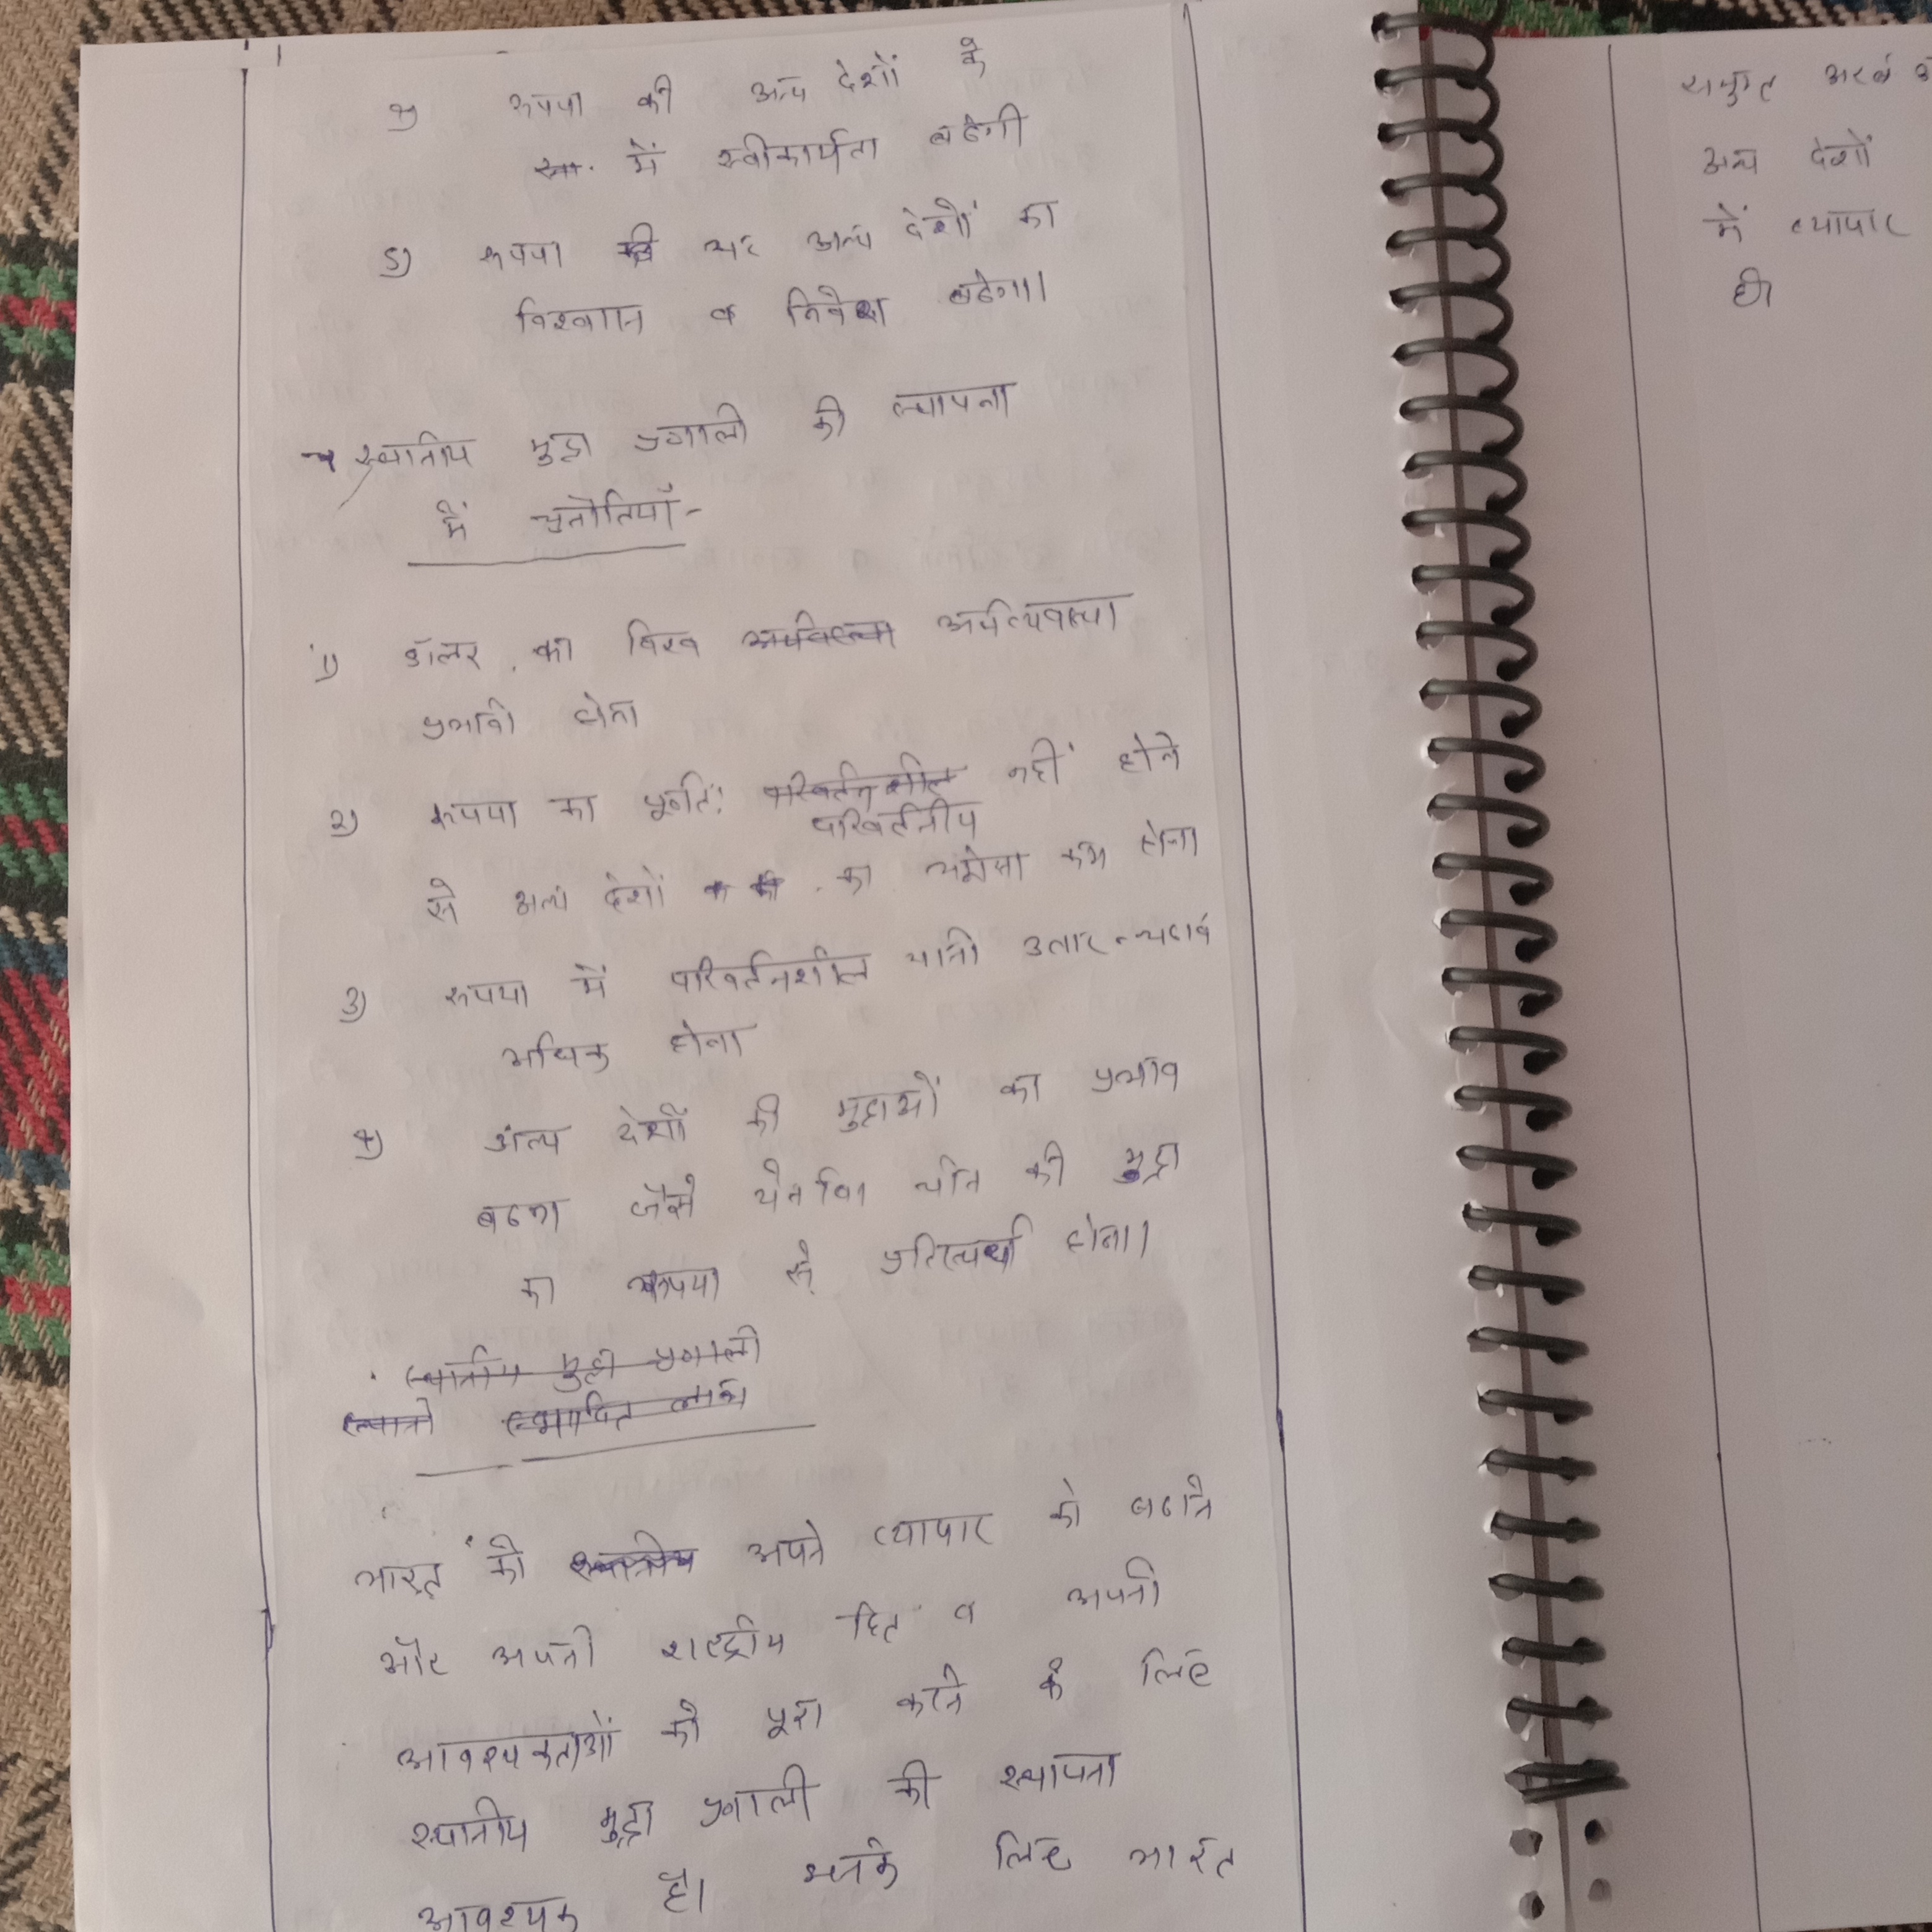 4) रूपया की अन्य देशों के
में स्वीकार्यता बढेगी
5) रूपया पर अन्य देशों का
विश्वास व निवेश बढेगा।
→ स्थानीय मुद्रा प्रणाली की स्थापना
में चुनौतियाँ-
1) डॉलर का विश्व अर्थव्यवस्था
प्रभावी होना
2) रूपया का पूर्णतः परिवर्तनीय नहीं होने
से अन्य देशों का भरोसा कम होना
3) रूपया में परिवर्तनशील यानी उतार-चढाव
अधिक होना
4) अन्य देशों की मुद्राओं का प्रभाव
बढना जैसे चीन की मुद्रा
का रूपया से प्रतिस्पर्धा होना।
स्थानीय मुद्रा प्रणाली
भारत को अपने व्यापार को बढाने
और अपनी राष्ट्रीय हित व अपनी
आवश्यकताओं को पूरा करने के लिए
स्थानीय मुद्रा प्रणाली की स्थापना
आवश्यक है। लिए भारत
संयुक्त अरब
अन्य देशों
में व्यापार